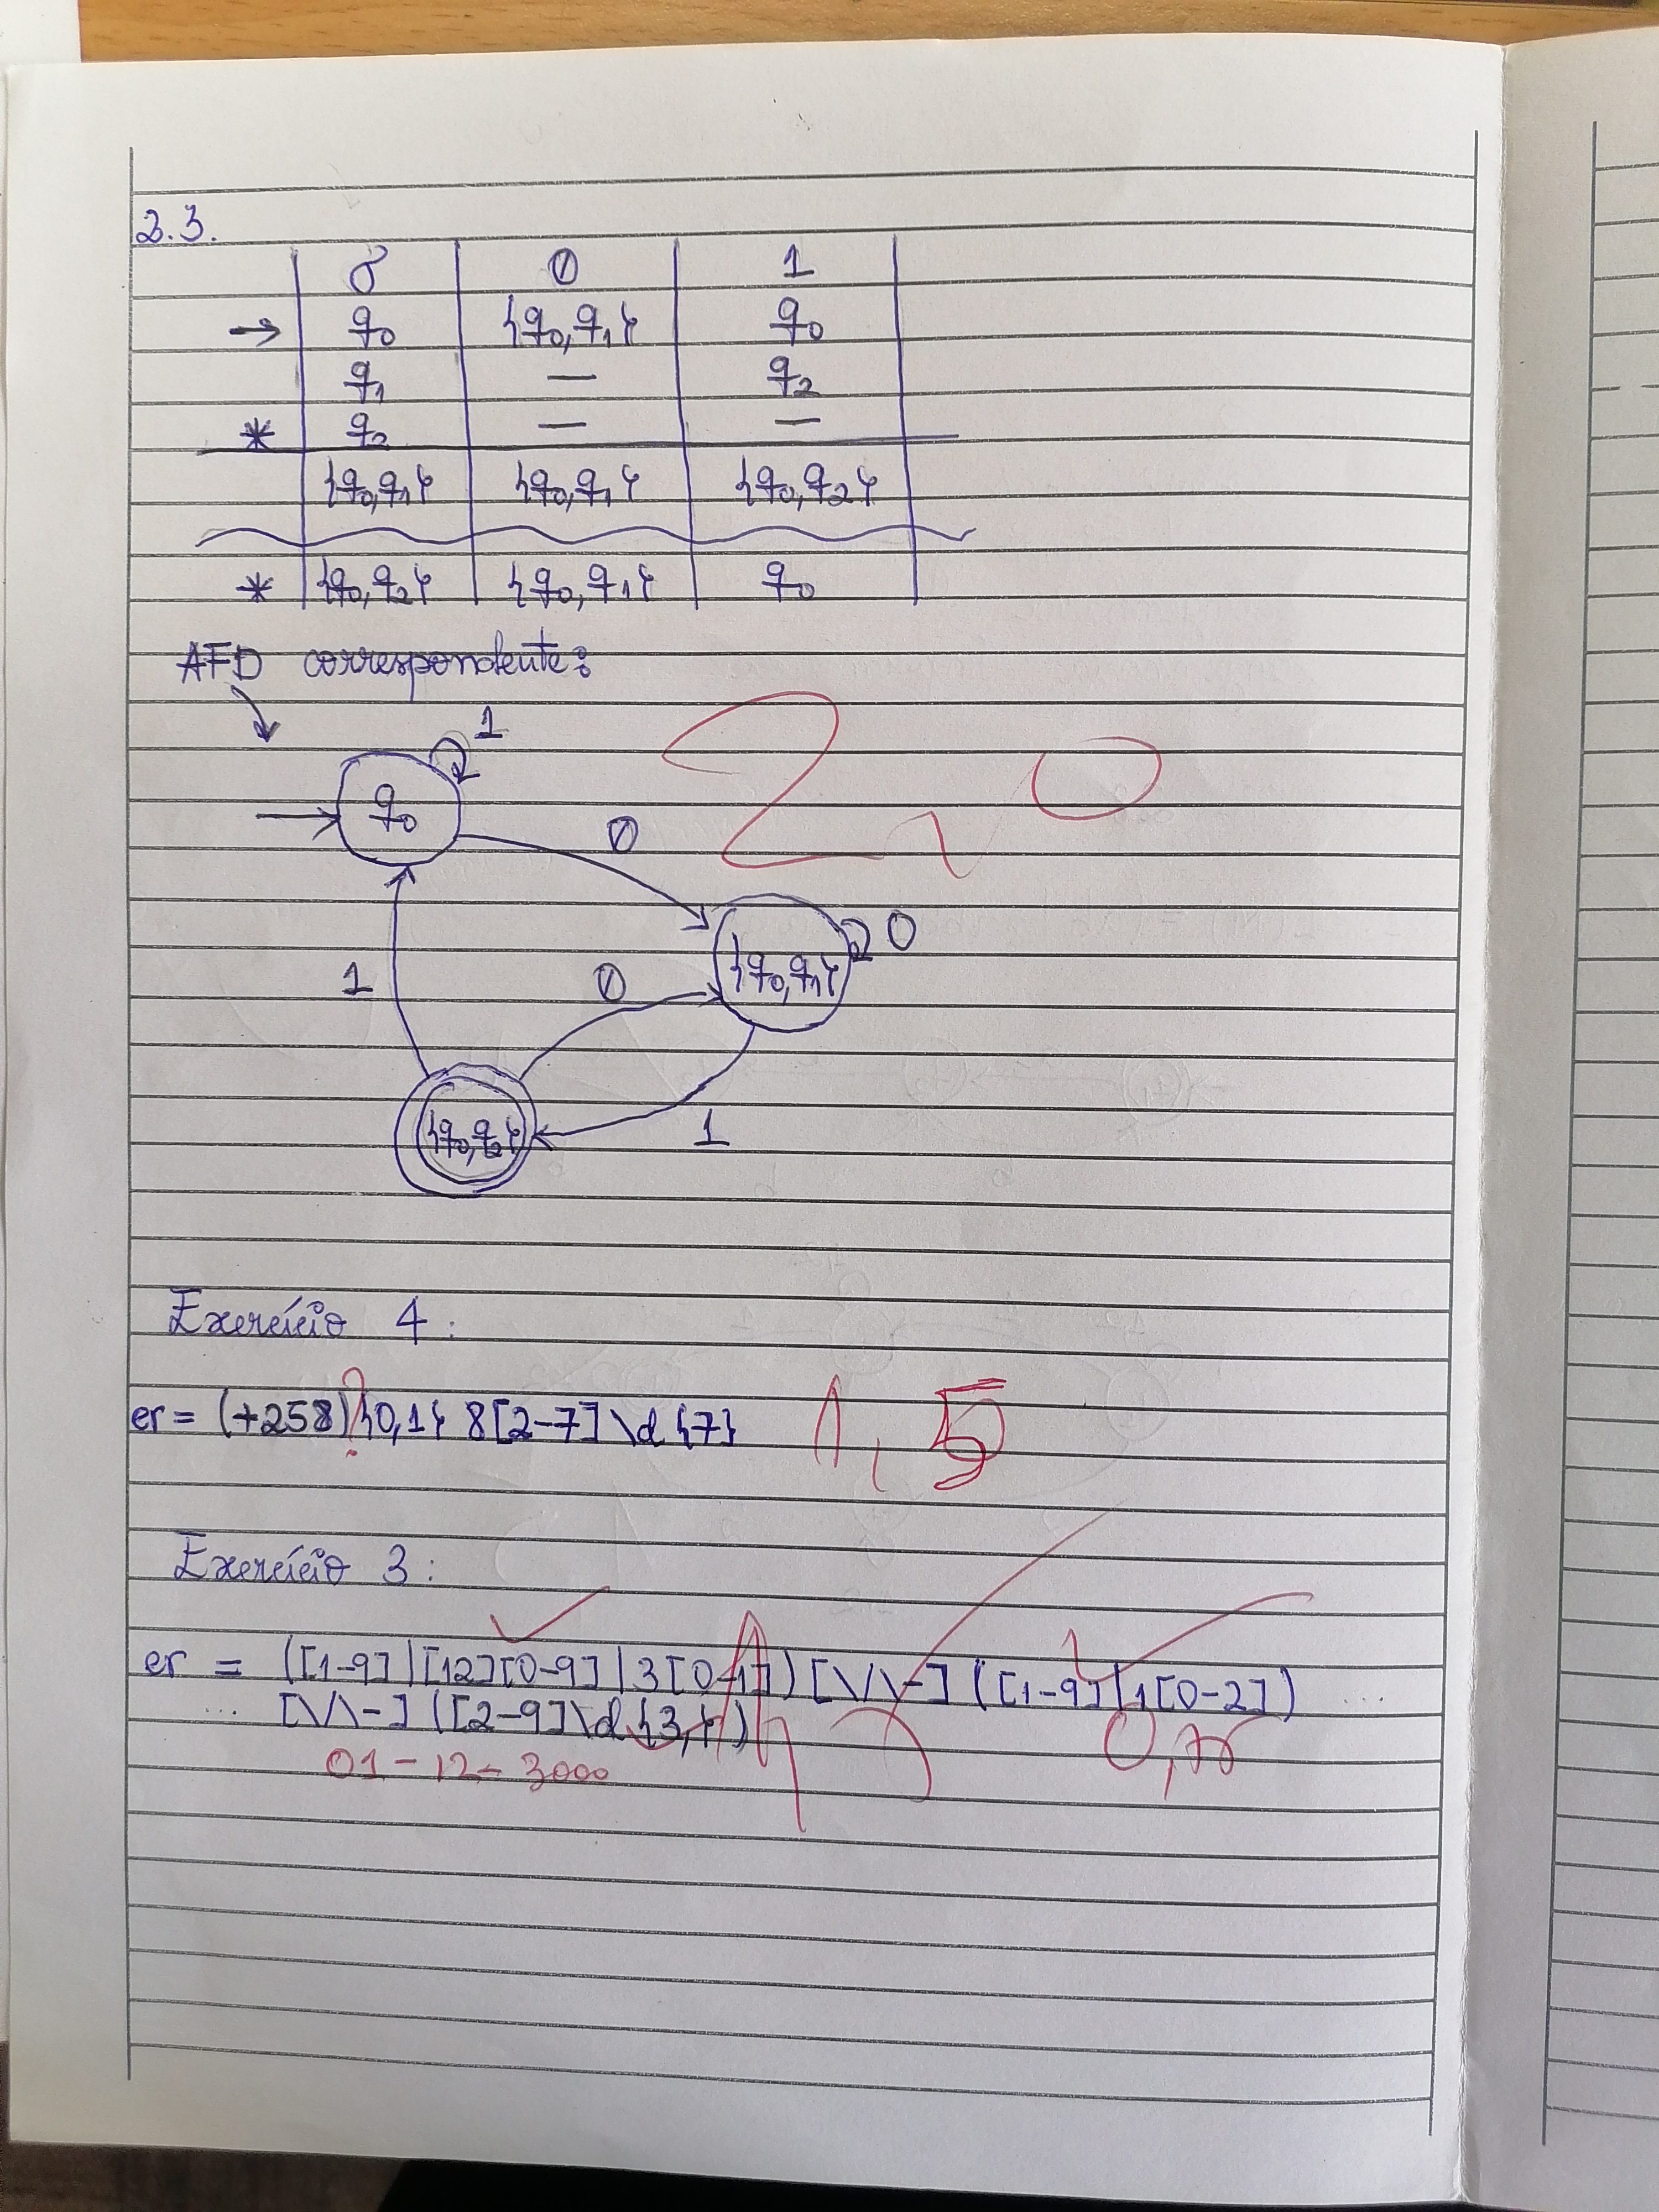 2.3.
δ 0 1
→ q0 {q0,q1} q0
q1 — q2
* q2 — —
{q0,q1} {q0,q1} {q0,q2}
* {q0,q2} {q0,q1} q0
AFD correspondente:
1
q0
2,0
0
0
{q0,q1}
1
0
{q0,q2}
1
Exercício 4:
?
er = (+258){0,1} 8[2-7]\d{7} 1,5
Exercício 3:
er = ([1-9]|[12][0-9]|3[0-1])[\/\-]([1-9]|1[0-2]) ...
... [\/\-]([2-9]\d{3,})
0,75
01-12-3000